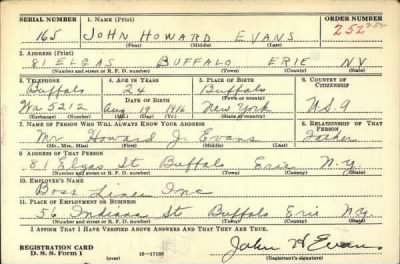 SERIAL NUMBER 1. NAME (Print) ORDER NUMBER
165 JOHN HOWARD EVANS 252
(First) (Middle) (Last)
2. ADDRESS (Print)
81 ELGAS BUFFALO ERIE NY
(Number and street or R. F. D. number) (Town) (County) (State)
3. TELEPHONE 4. AGE IN YEARS 5. PLACE OF BIRTH 6. COUNTRY OF CITIZENSHIP
Buffalo 24 Buffalo
DATE OF BIRTH (Town or county)
Wa 5212 Aug 19 1916 New York U.S.A
(Exchange) (Number) (Mo.) (Day) (Yr.) (State or country)
7. NAME OF PERSON WHO WILL ALWAYS KNOW YOUR ADDRESS 8. RELATIONSHIP OF THAT PERSON
Mr. Howard J. Evans Father
(Mr., Mrs., Miss) (First) (Middle) (Last)
9. ADDRESS OF THAT PERSON
81 Elgas St Buffalo Erie N.Y.
(Number and street or R. F. D. number) (Town) (County) (State)
10. EMPLOYER'S NAME
Boss Lines Inc
11. PLACE OF EMPLOYMENT OR BUSINESS
56 Indiana St Buffalo Erie N.Y.
(Number and street or R. F. D. number) (Town) (County) (State)
I AFFIRM THAT I HAVE VERIFIED ABOVE ANSWERS AND THAT THEY ARE TRUE.
REGISTRATION CARD
D. S. S. Form 1 16—17105 John H Evans
(over) (Registrant's signature)